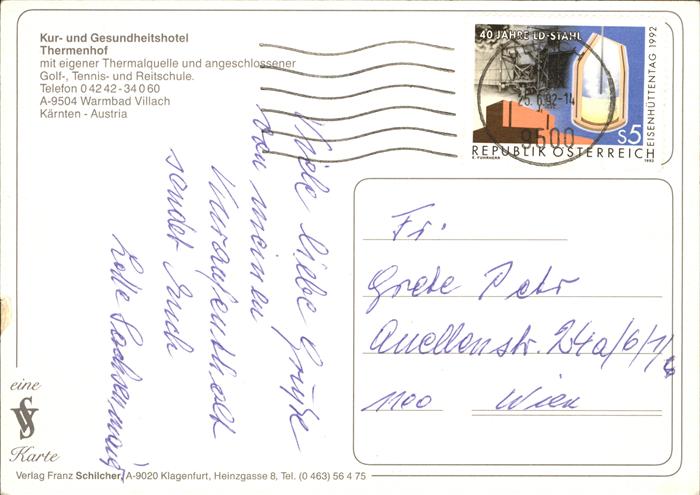 Kur- und Gesundheitshotel
Thermenhof
mit eigener Thermalquelle und angeschlossener
Golf-, Tennis- und Reitschule.
Telefon 0 42 42 - 34 0 60
A-9504 Warmbad Villach
Kärnten - Austria
40 JAHRE LD-STAHL
EISENHÜTTENTAG 1992
25.6.92-14
9500
S5
REPUBLIK ÖSTERREICH
E. FUHRHERR
1992
Viele liebe Grüße
von meinen
Kuraufenthalt
sendet Euch
Lotte
Fr.
Grete Petr
24a/6/1/6
1100 Wien
eine
VS
Karte
Verlag Franz Schilcher, A-9020 Klagenfurt, Heinzgasse 8, Tel. (0 463) 56 4 75